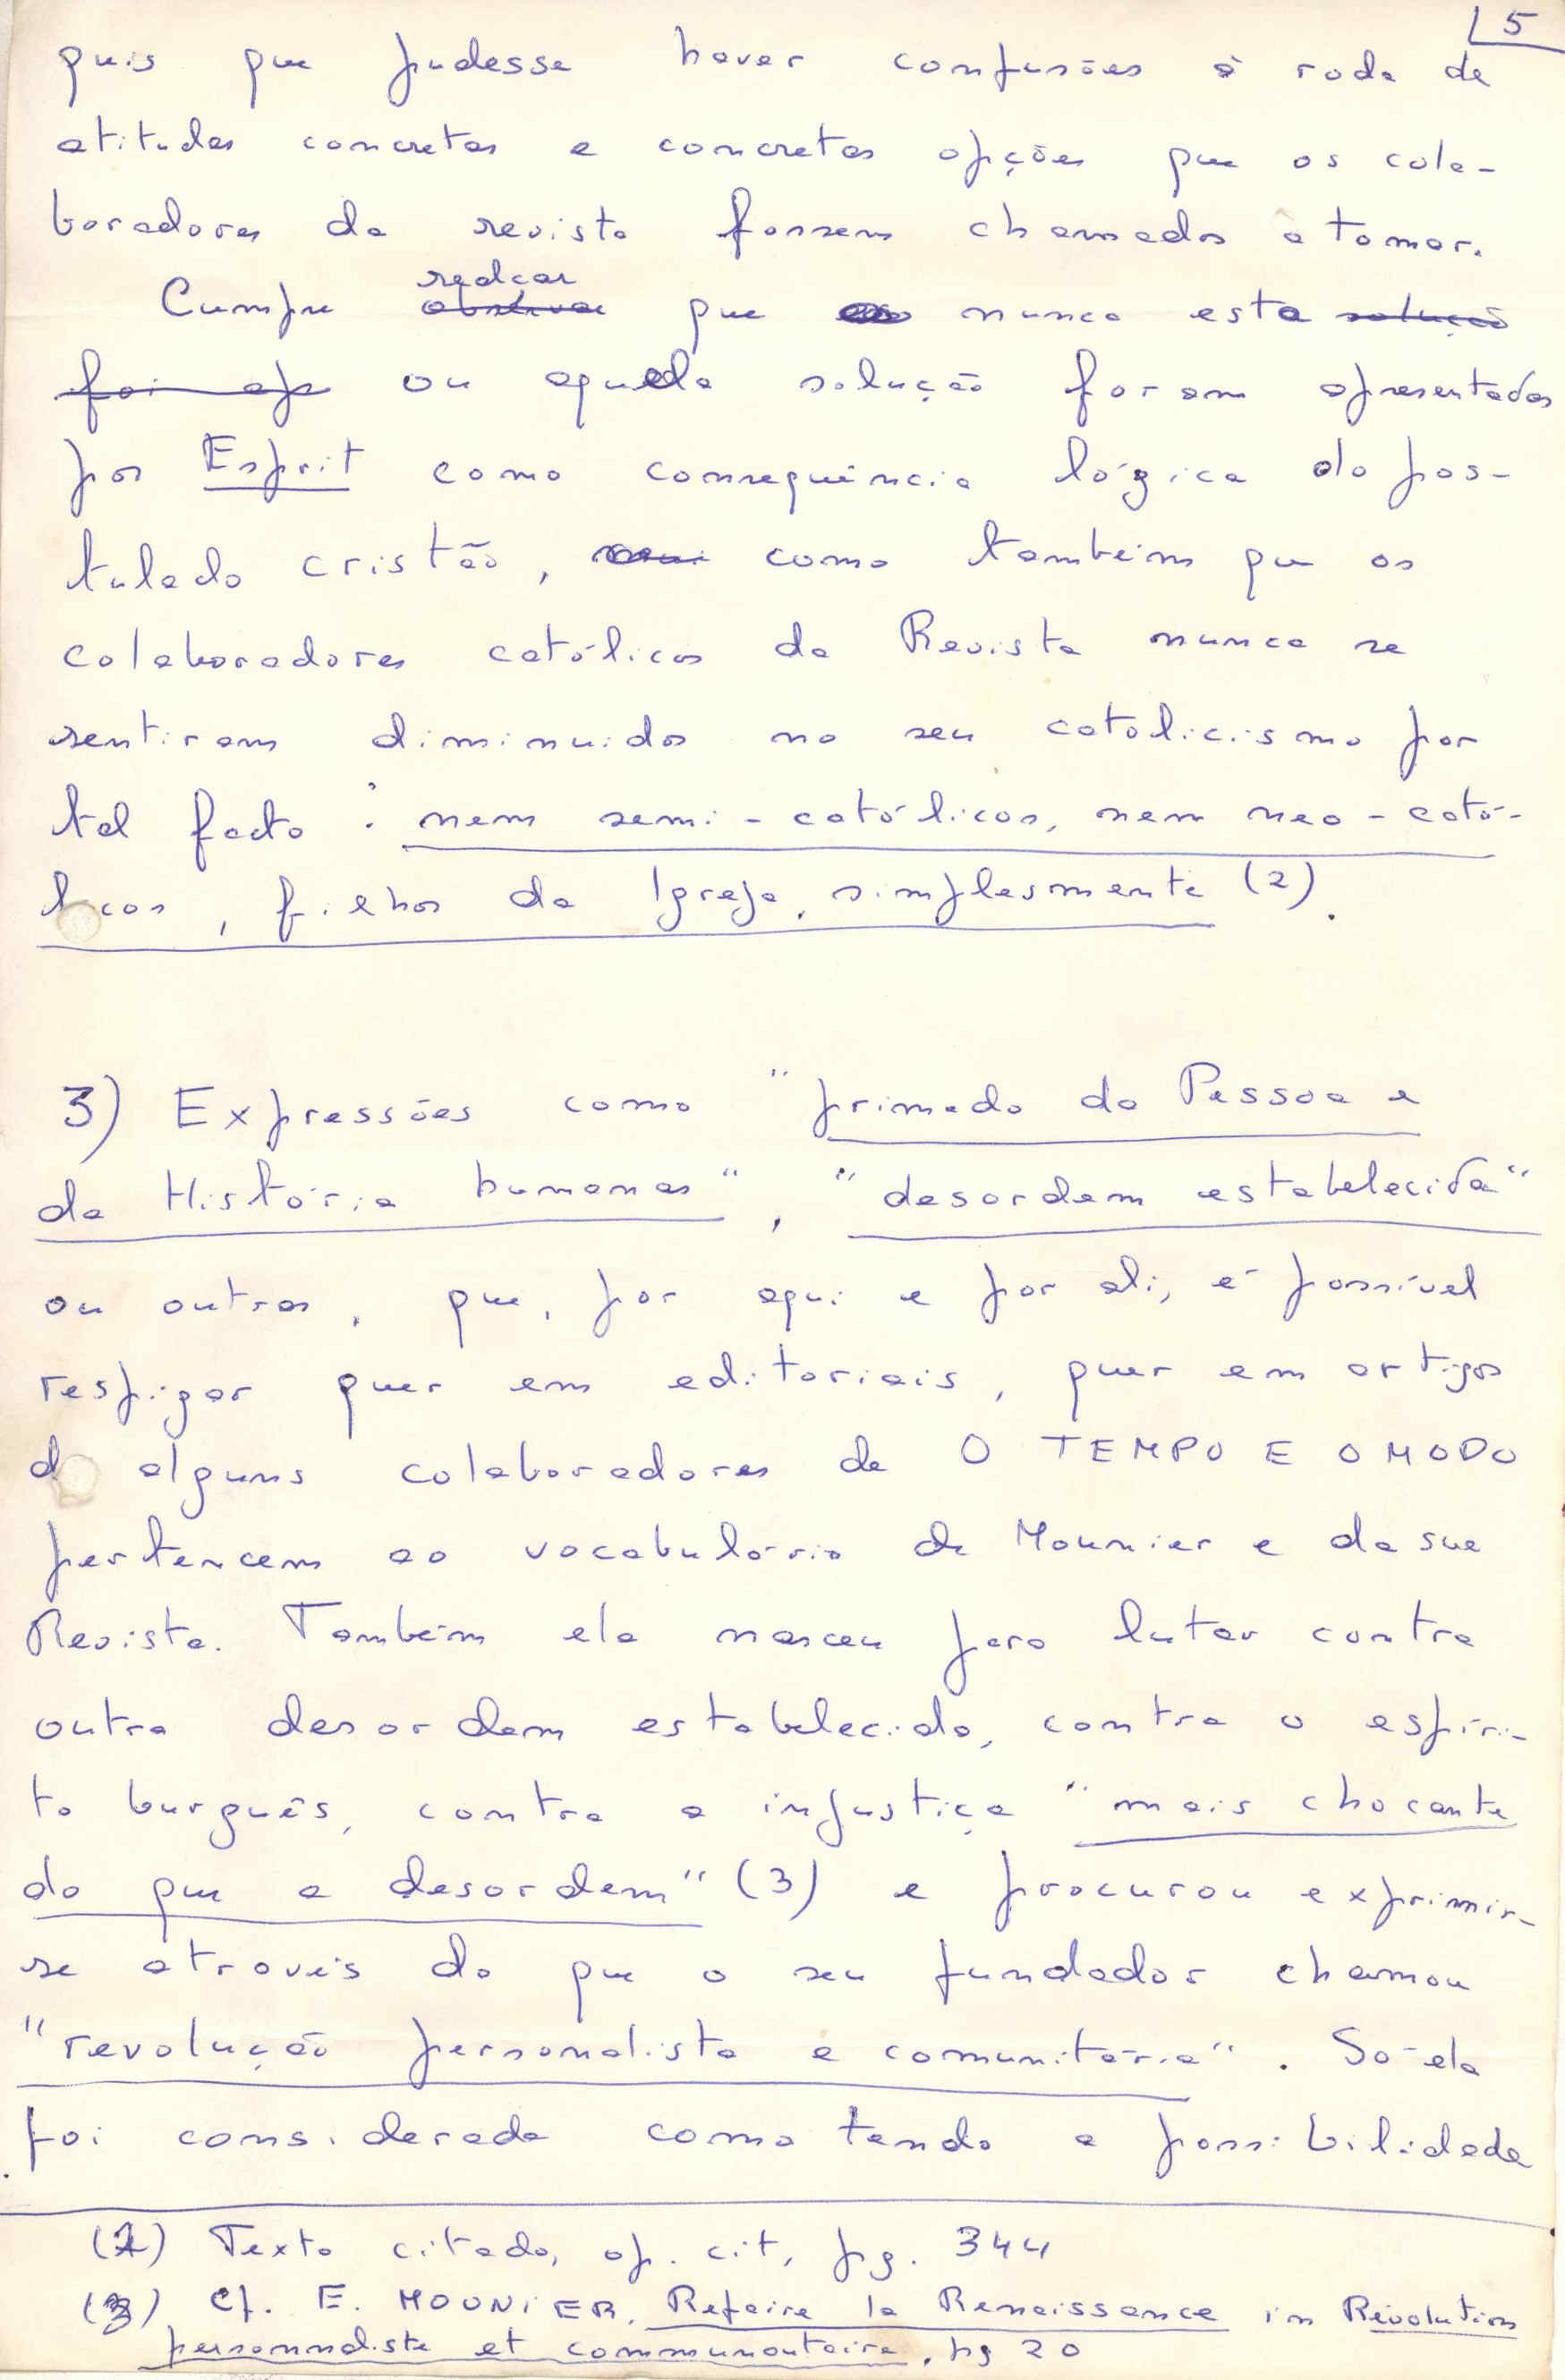 5
quis que pudesse haver confusões à roda de
atitudes concretas e concretas opções que os cola-
boradores da revista fossem chamados a tomar.
realçar
Cumpre observar que nunca esta solução
foi ap ou aquela solução foram apresentadas
por Esprit como consequência lógica do pos-
tulado cristão, como também que os
colaboradores católicos da Revista nunca se
sentiram diminuidos no seu catolicismo por
tal facto: nem semi-católicos, nem neo-cató-
licos, filhos da Igreja, simplesmente (2).
3) Expressões como "primado da Pessoa e
da História humanas", "desordem estabelecida"
ou outras, que, por aqui e por ali, é possível
respigar quer em editoriais, quer em artigos
d alguns colaboradores de O TEMPO E O MODO
pertencem ao vocabulário de Mounier e da sua
Revista. Também ela nasceu para lutar contra
outra desordem estabelecida, contra o espíri-
to burguês, contra a injustiça "mais chocante
do que a desordem" (3) e procurou exprimir-
se através do que o seu fundador chamou
"revolução personalista e comunitária". Só ela
foi considerada como tendo a possibilidade
(2) Texto citado, op. cit, pg. 344
(3) Cf. E. MOUNIER, Refaire la Renaissance in Révolution
personnaliste et communautaire, pg 20